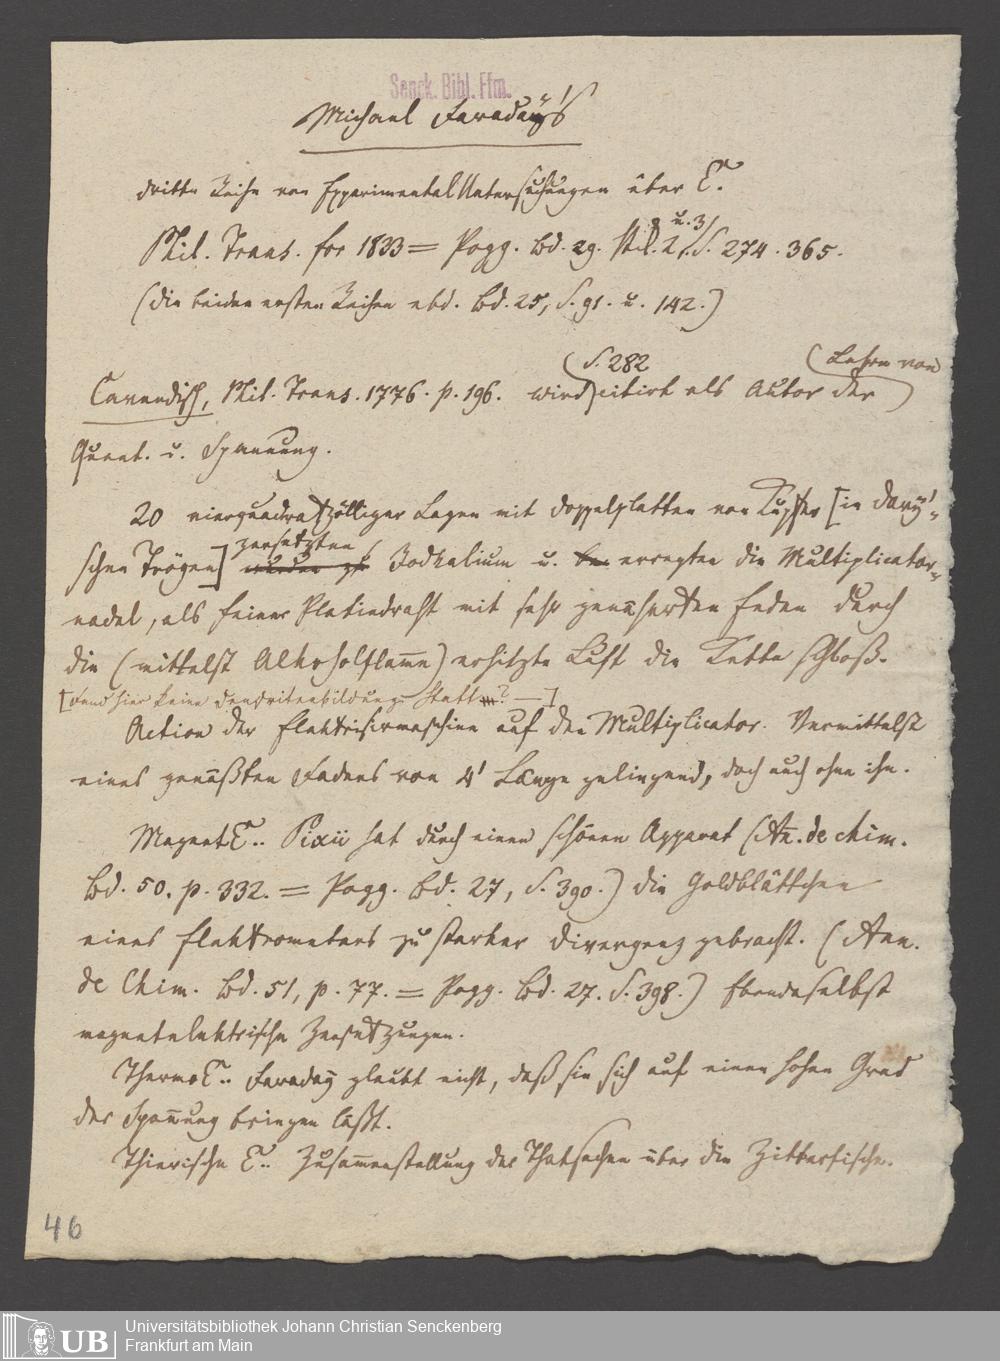 Senck. Bibl. Ffm.
Michael Faraday's
dritte Reihe von Experimental Untersuchungen über E.
Phil. Trans. for 1833 = Pogg. Bd. 29. St. 2 u. 3, S. 274. 365.
(die beiden ersten Reihen ebd. Bd. 25, S. 91. u. 142.)
Cavendish, Phil. Trans. 1776. p. 196. wird (S. 282) citirt als Autor der (Lehre von)
Quant. u. Spannung.
20 vierquadratzöllige Lagen mit Doppelplatten von Kupfer [in Davy'-
schen Trögen] wurden zersetzten Jodkalium u. erregten die Multiplicator-
nadel, als feiner Platindraht mit sehr genäherten Enden durch
die (mittelst Alkoholflamme) erhitzte Luft die Kette schloß.
[fand hier keine Dendritenbildung Statt? —]
Action der Elektrisirmaschine auf den Multiplicator. Vermittelst
eines genäßten Fadens von 4' Länge gelingend, doch auch ohne ihn.
Magnet E.. Pixii hat durch einen schönen Apparat (An. de chim.
Bd. 50. p. 322. = Pogg. Bd. 27, S. 390.) die Goldblättchen
eines Elektrometers zu starker Divergenz gebracht. (Ann.
de Chim. Bd. 51, p. 77. = Pogg. Bd. 27. S. 398.) Ebendaselbst
magnetelektrische Zersetzungen.
Thermo E.. Faraday glaubt nicht, daß sie sich auf einen hohen Grad
der Spannung bringen läßt.
Thierische E.. Zusammenstellung der Thatsachen über die Zitterfische.
46
UB
Universitätsbibliothek Johann Christian Senckenberg
Frankfurt am Main